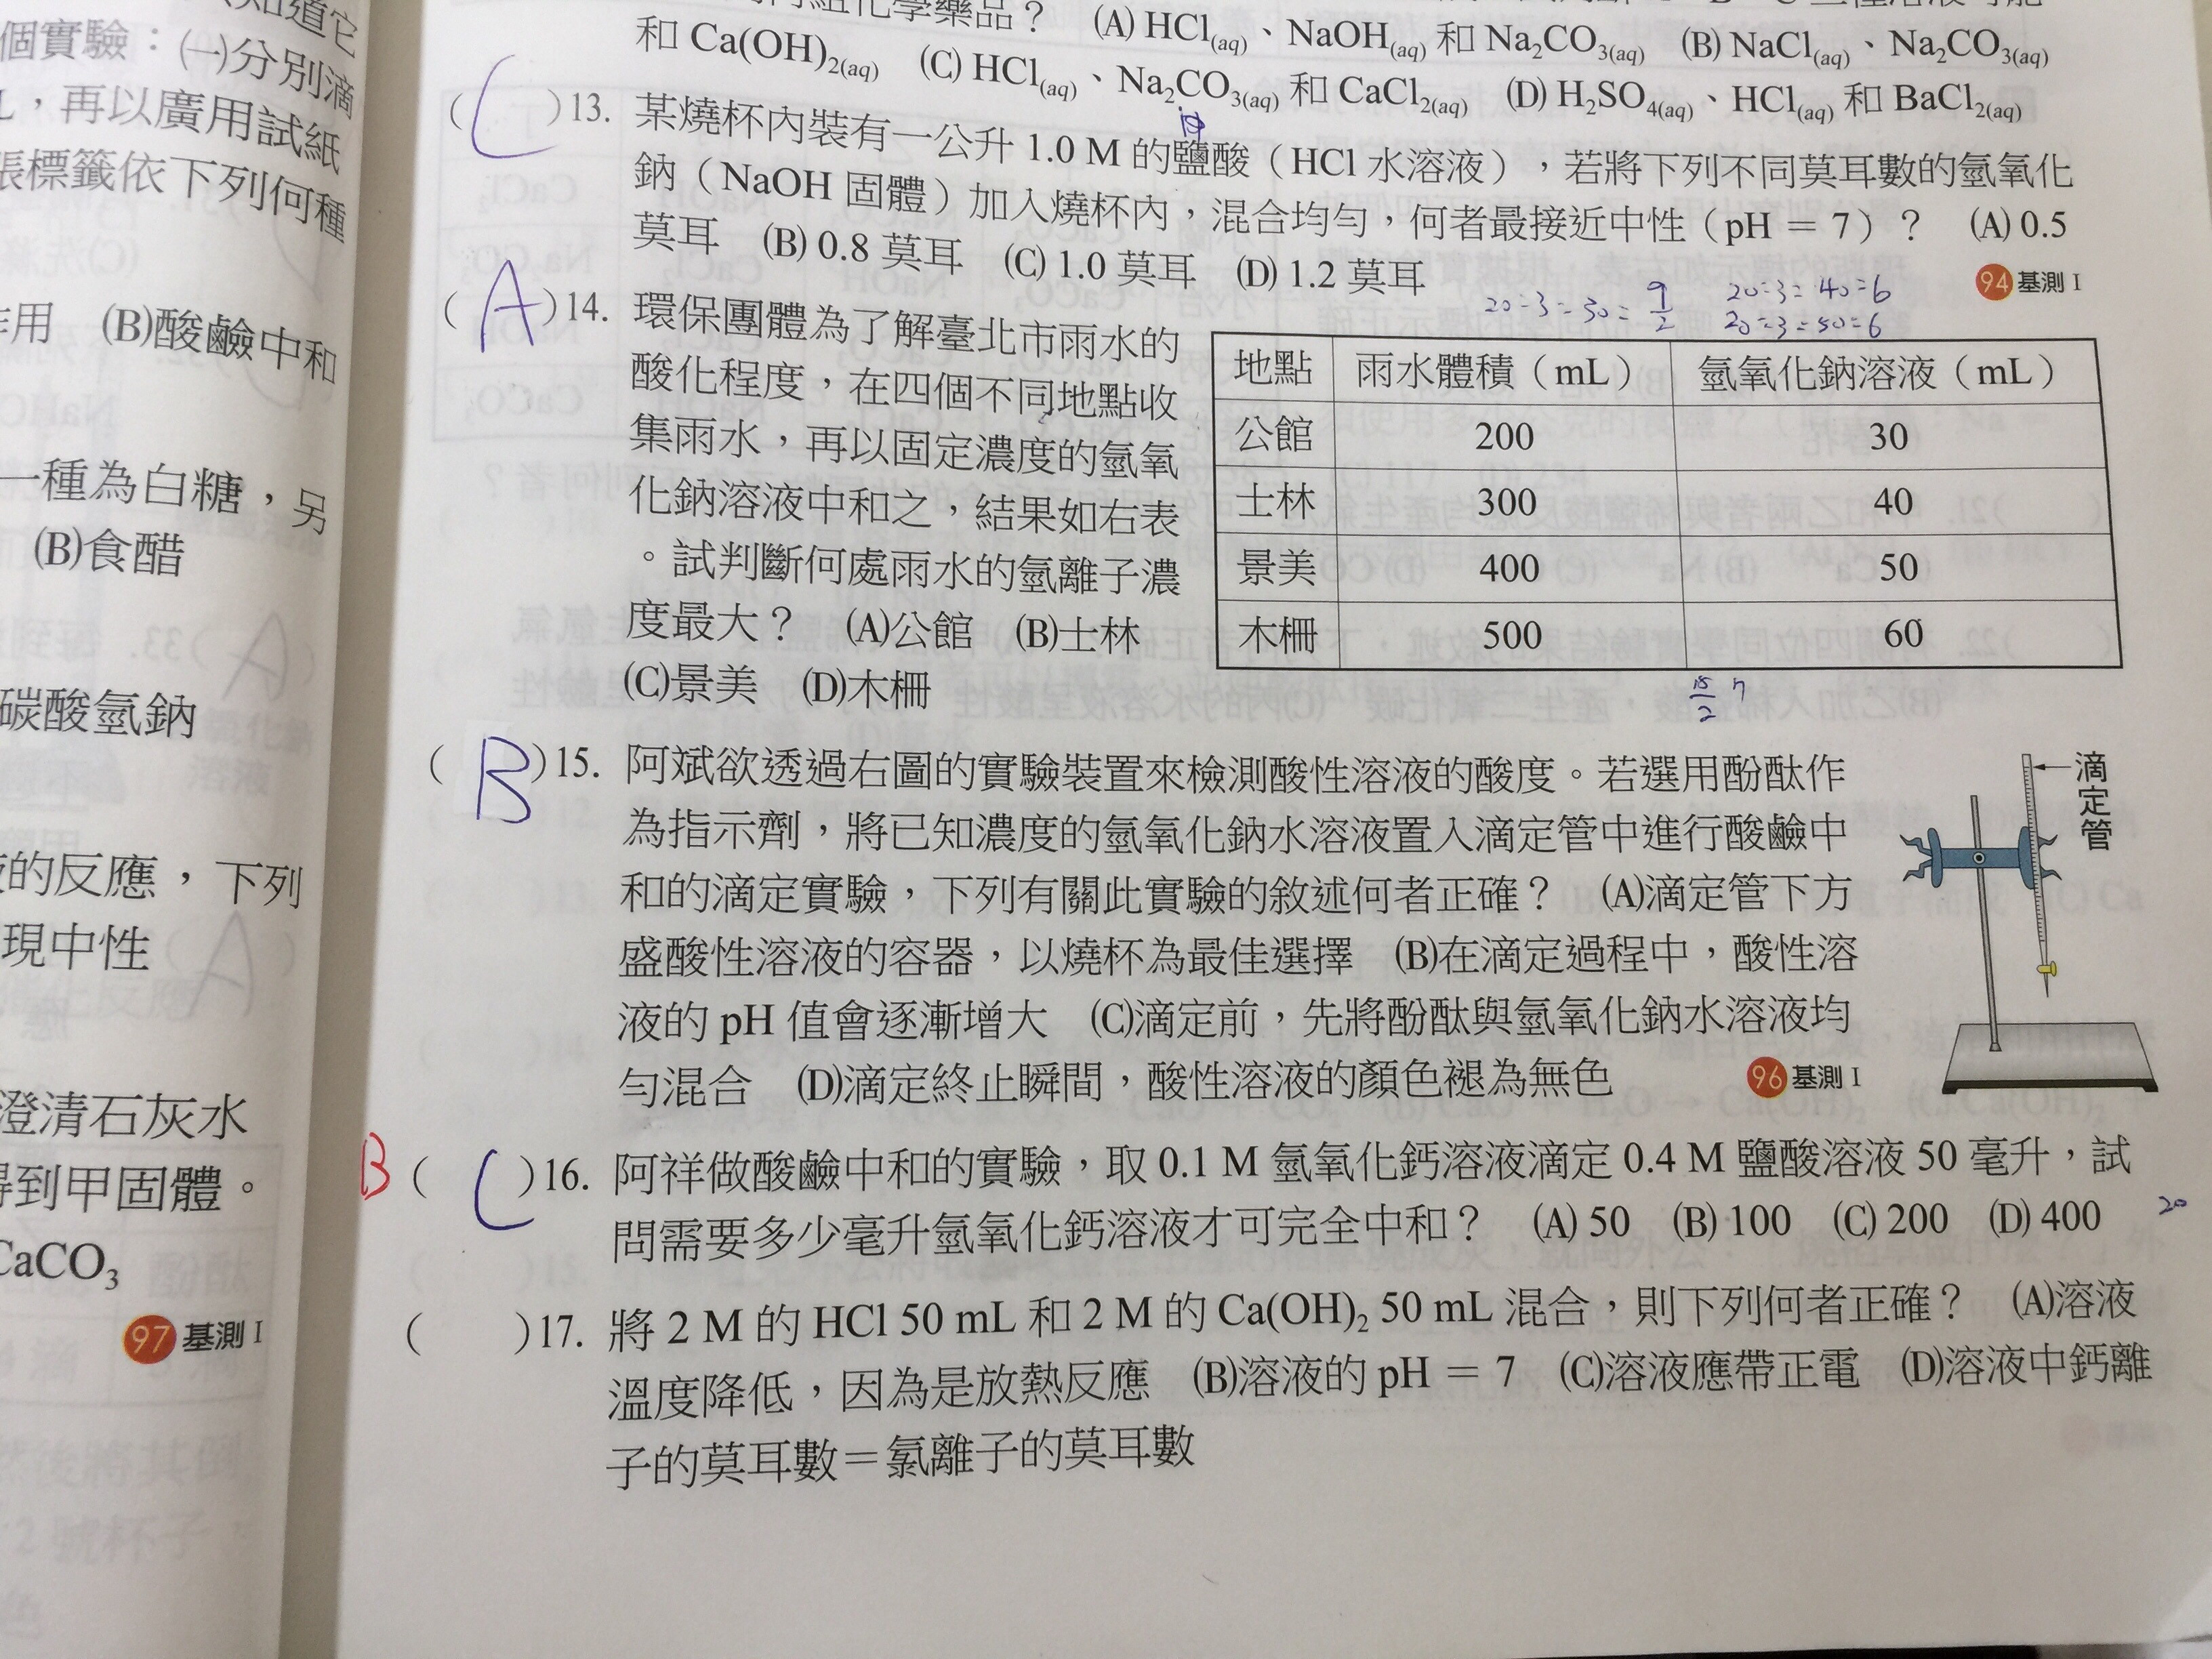 知道它
個實驗：㈠分別滴
L，再以廣用試紙
張標籤依下列何種
作用　(B)酸鹼中和
一種為白糖，另
(B)食醋
碳酸氫鈉
液的反應，下列
現中性
澄清石灰水
得到甲固體。
CaCO3
97 基測 I
化學藥品？　(A) HCl(aq)、NaOH(aq) 和 Na2CO3(aq)　(B) NaCl(aq)、Na2CO3(aq)
和 Ca(OH)2(aq)　(C) HCl(aq)、Na2CO3(aq) 和 CaCl2(aq)　(D) H2SO4(aq)、HCl(aq) 和 BaCl2(aq)
( C )13. 某燒杯內裝有一公升 1.0 M 的鹽酸（HCl 水溶液），若將下列不同莫耳數的氫氧化
鈉（NaOH 固體）加入燒杯內，混合均勻，何者最接近中性（pH = 7）？　(A) 0.5
莫耳　(B) 0.8 莫耳　(C) 1.0 莫耳　(D) 1.2 莫耳
94 基測 I
( A )14. 環保團體為了解臺北市雨水的
酸化程度，在四個不同地點收
集雨水，再以固定濃度的氫氧
化鈉溶液中和之，結果如右表
。試判斷何處雨水的氫離子濃
度最大？　(A)公館　(B)士林
(C)景美　(D)木柵
20=3=30= 9/2
20=3=40=6
20=3=50=6
地點　雨水體積（mL）　氫氧化鈉溶液（mL）
公館　200　30
士林　300　40
景美　400　50
木柵　500　60
( B )15. 阿斌欲透過右圖的實驗裝置來檢測酸性溶液的酸度。若選用酚酞作
為指示劑，將已知濃度的氫氧化鈉水溶液置入滴定管中進行酸鹼中
和的滴定實驗，下列有關此實驗的敘述何者正確？　(A)滴定管下方
盛酸性溶液的容器，以燒杯為最佳選擇　(B)在滴定過程中，酸性溶
液的 pH 值會逐漸增大　(C)滴定前，先將酚酞與氫氧化鈉水溶液均
勻混合　(D)滴定終止瞬間，酸性溶液的顏色褪為無色
96 基測 I
滴定管
B ( C )16. 阿祥做酸鹼中和的實驗，取 0.1 M 氫氧化鈣溶液滴定 0.4 M 鹽酸溶液 50 毫升，試
問需要多少毫升氫氧化鈣溶液才可完全中和？　(A) 50　(B) 100　(C) 200　(D) 400
20
(　)17. 將 2 M 的 HCl 50 mL 和 2 M 的 Ca(OH)2 50 mL 混合，則下列何者正確？　(A)溶液
溫度降低，因為是放熱反應　(B)溶液的 pH = 7　(C)溶液應帶正電　(D)溶液中鈣離
子的莫耳數＝氯離子的莫耳數